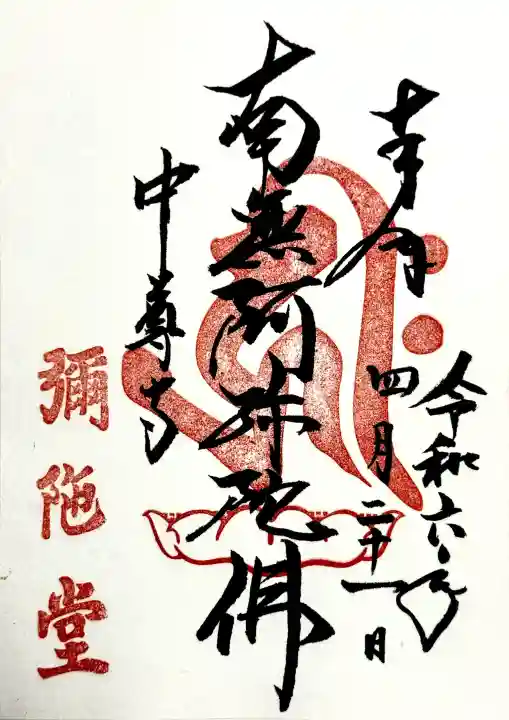 奉拝
令和六年
四月二十一日
南無阿弥陀佛
中尊寺
彌陀堂